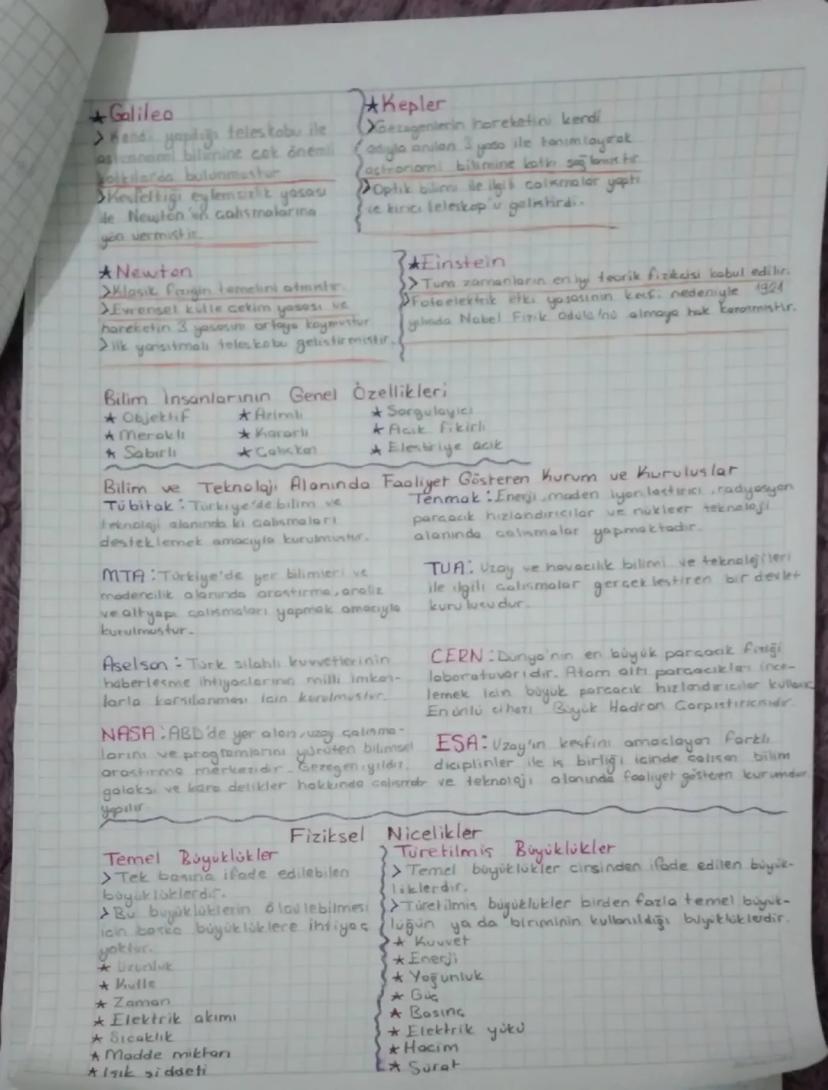 ★ Galileo
> Kendi yaptığı teleskobu ile
astronomi bilimine çok önemli
katkılarda bulunmuştur
> Keşfettiği eylemsizlik yasası
ile Newton'un çalışmalarına
yön vermiştir.
★ Kepler
> Gezegenlerin hareketini kendi
adıyla anılan 3 yasa ile tanımlayarak
astronomi bilimine katkı sağlamıştır.
> Optik bilimi ile ilgili çalışmalar yaptı
ve kırıcı teleskop'u geliştirdi.
★ Newton
> Klasik fiziğin temelini atmıştır.
> Evrensel kütle çekim yasası ve
hareketin 3 yasasını ortaya koymuştur.
> İlk yansıtmalı teleskobu geliştirmiştir.
★ Einstein
> Tüm zamanların en iyi teorik fizikçisi kabul edilir.
> Fotoelektrik etki yasasının keşfi nedeniyle 1921
yılında Nobel Fizik Ödülü'nü almaya hak kazanmıştır.
Bilim İnsanlarının Genel Özellikleri
★ Objektif ★ Azimli ★ Sorgulayıcı
★ Meraklı ★ Kararlı ★ Açık fikirli
★ Sabırlı ★ Çalışkan ★ Eleştiriye açık
Bilim ve Teknoloji Alanında Faaliyet Gösteren Kurum ve Kuruluşlar
Tübitak: Türkiye'de bilim ve
teknoloji alanında ki çalışmaları
desteklemek amacıyla kurulmuştur.
Tenmak: Enerji, maden iyonlaştırıcı, radyasyon
parçacık hızlandırıcılar ve nükleer teknoloji
alanında çalışmalar yapmaktadır.
MTA: Türkiye'de yer bilimleri ve
madencilik alanında araştırma, analiz
ve altyapı çalışmaları yapmak amacıyla
kurulmuştur.
TUA: Uzay ve havacılık bilimi ve teknolojileri
ile ilgili çalışmalar gerçekleştiren bir devlet
kuruluşudur.
Aselsan: Türk silahlı kuvvetlerinin
haberleşme ihtiyaçlarının milli imkan-
larla karşılanması için kurulmuştur.
CERN: Dünya'nın en büyük parçacık fiziği
laboratuvarıdır. Atom altı parçacıkları ince-
lemek için büyük parçacık hızlandırıcılar
En ünlü cihazı Büyük Hadron Çarpıştırıcısıdır.
NASA: ABD'de yer alan, uzay çalışma-
larını ve programlarını yürüten bilimsel
araştırma merkezidir. Gezegen, yıldız,
galaksi ve kara delikler hakkında çalışmalar
yapılır.
ESA: Uzay'ın keşfini amaçlayan farklı
diciplinler ile iş birliği içinde çalışan bilim
ve teknoloji alanında faaliyet gösteren kurumdur.
Fiziksel Nicelikler
Temel Büyüklükler
> Tek başına ifade edilebilen
büyüklüklerdir.
> Bu büyüklüklerin ölçülebilmesi
için başka büyüklüklere ihtiyaç
yoktur.
★ Uzunluk
★ Kütle
★ Zaman
★ Elektrik akımı
★ Sıcaklık
★ Madde miktarı
★ Işık şiddeti
Türetilmiş Büyüklükler
> Temel büyüklükler cinsinden ifade edilen büyük-
lüklerdir.
> Türetilmiş büyüklükler birden fazla temel büyük-
lüğün ya da biriminin kullanıldığı büyüklüklerdir.
★ Kuvvet
★ Enerji
★ Yoğunluk
★ Güç
★ Basınç
★ Elektrik yükü
★ Hacim
★ Sürat